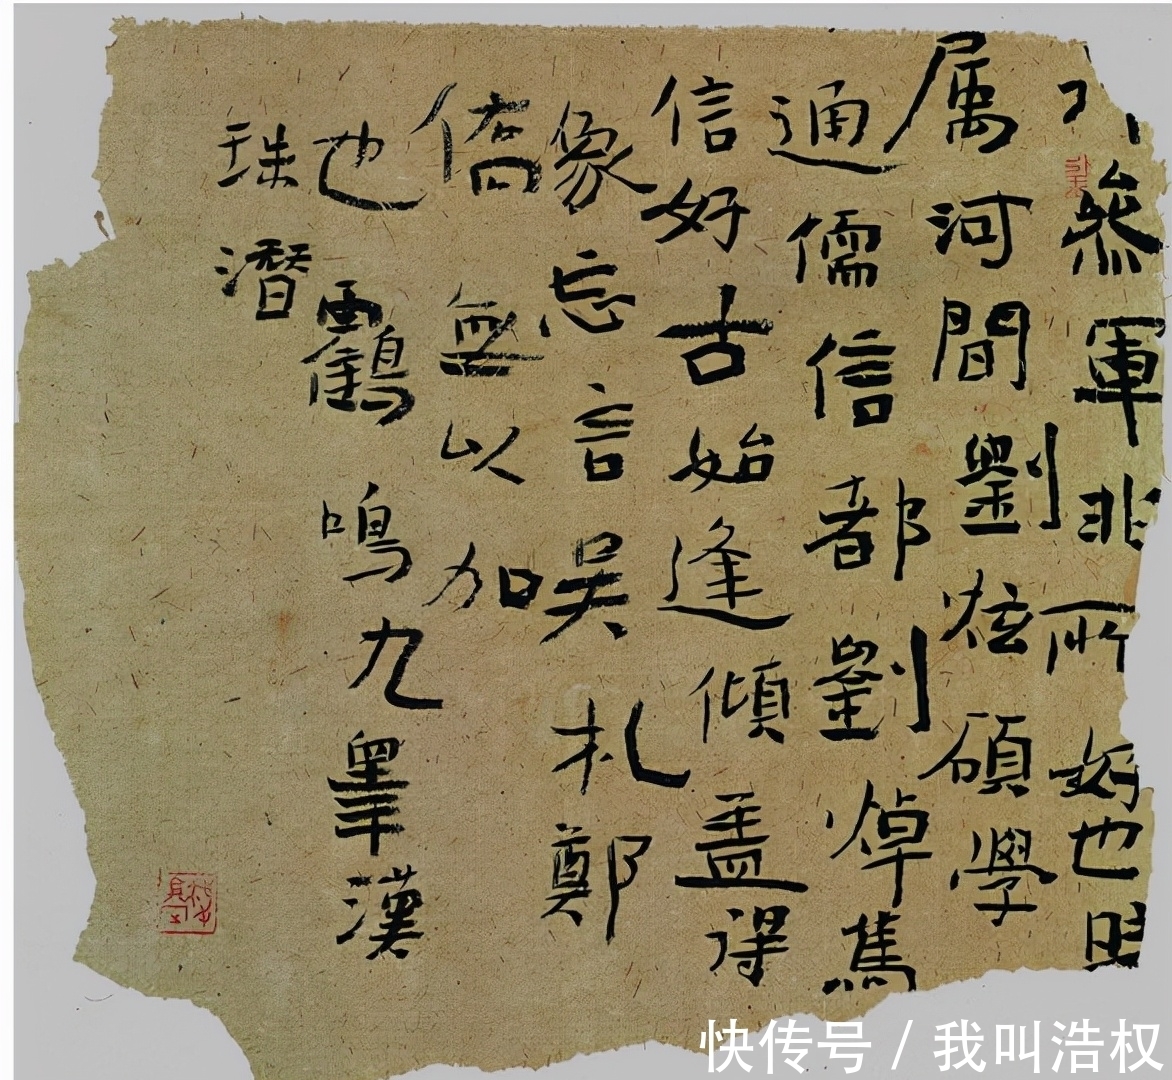 參軍非所好也時
属河間劉炫碩學
通儒信都劉焯舊
信好古始逢傾盖得
象忘言吴札鄭
僑無以加
也鶴鳴九睪漢
珠潛
快传号 / 我叫浩权